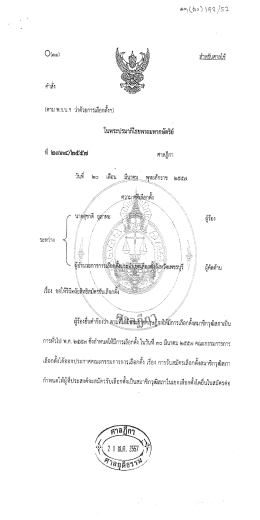 ○(๓๑)
สำหรับศาลใช้
คำสั่ง
(ตาม พ.ร.บ.ฯ ว่าด้วยการเลือกตั้งฯ)
ในพระปรมาภิไธยพระมหากษัตริย์
ที่ /๒๕๕๗
ศาลฎีกา
วันที่ ๒๐ เดือน มีนาคม พุทธศักราช ๒๕๕๗
ความ เลือกตั้ง
ผู้ร้อง
ระหว่าง
ผู้อำนวยการการเลือกตั้งประจำ จังหวัดเพชรบุรี ผู้คัดค้าน
เรื่อง ขอให้วินิจฉัยสิทธิสมัครรับเลือกตั้ง
ผู้ร้องยื่นคำร้องว่า ให้มีการเลือกตั้งสมาชิกวุฒิสภาเป็น
การทั่วไป พ.ศ. ๒๕๕๗ ซึ่งกำหนดให้มีการเลือกตั้ง ในวันที่ ๓๐ มีนาคม ๒๕๕๗ คณะกรรมการการ
เลือกตั้งได้ออกประกาศคณะกรรมการการเลือกตั้ง เรื่อง การรับสมัครเลือกตั้งสมาชิกวุฒิสภา
กำหนดให้ผู้ซึ่งประสงค์จะสมัครรับเลือกตั้งเป็นสมาชิกวุฒิสภาในเขตเลือกตั้งใดยื่นใบสมัครต่อ
ศาลฎีกา
ศาลฎีกา
2 1 พ.ค. 2557
ศาลยุติธรรม